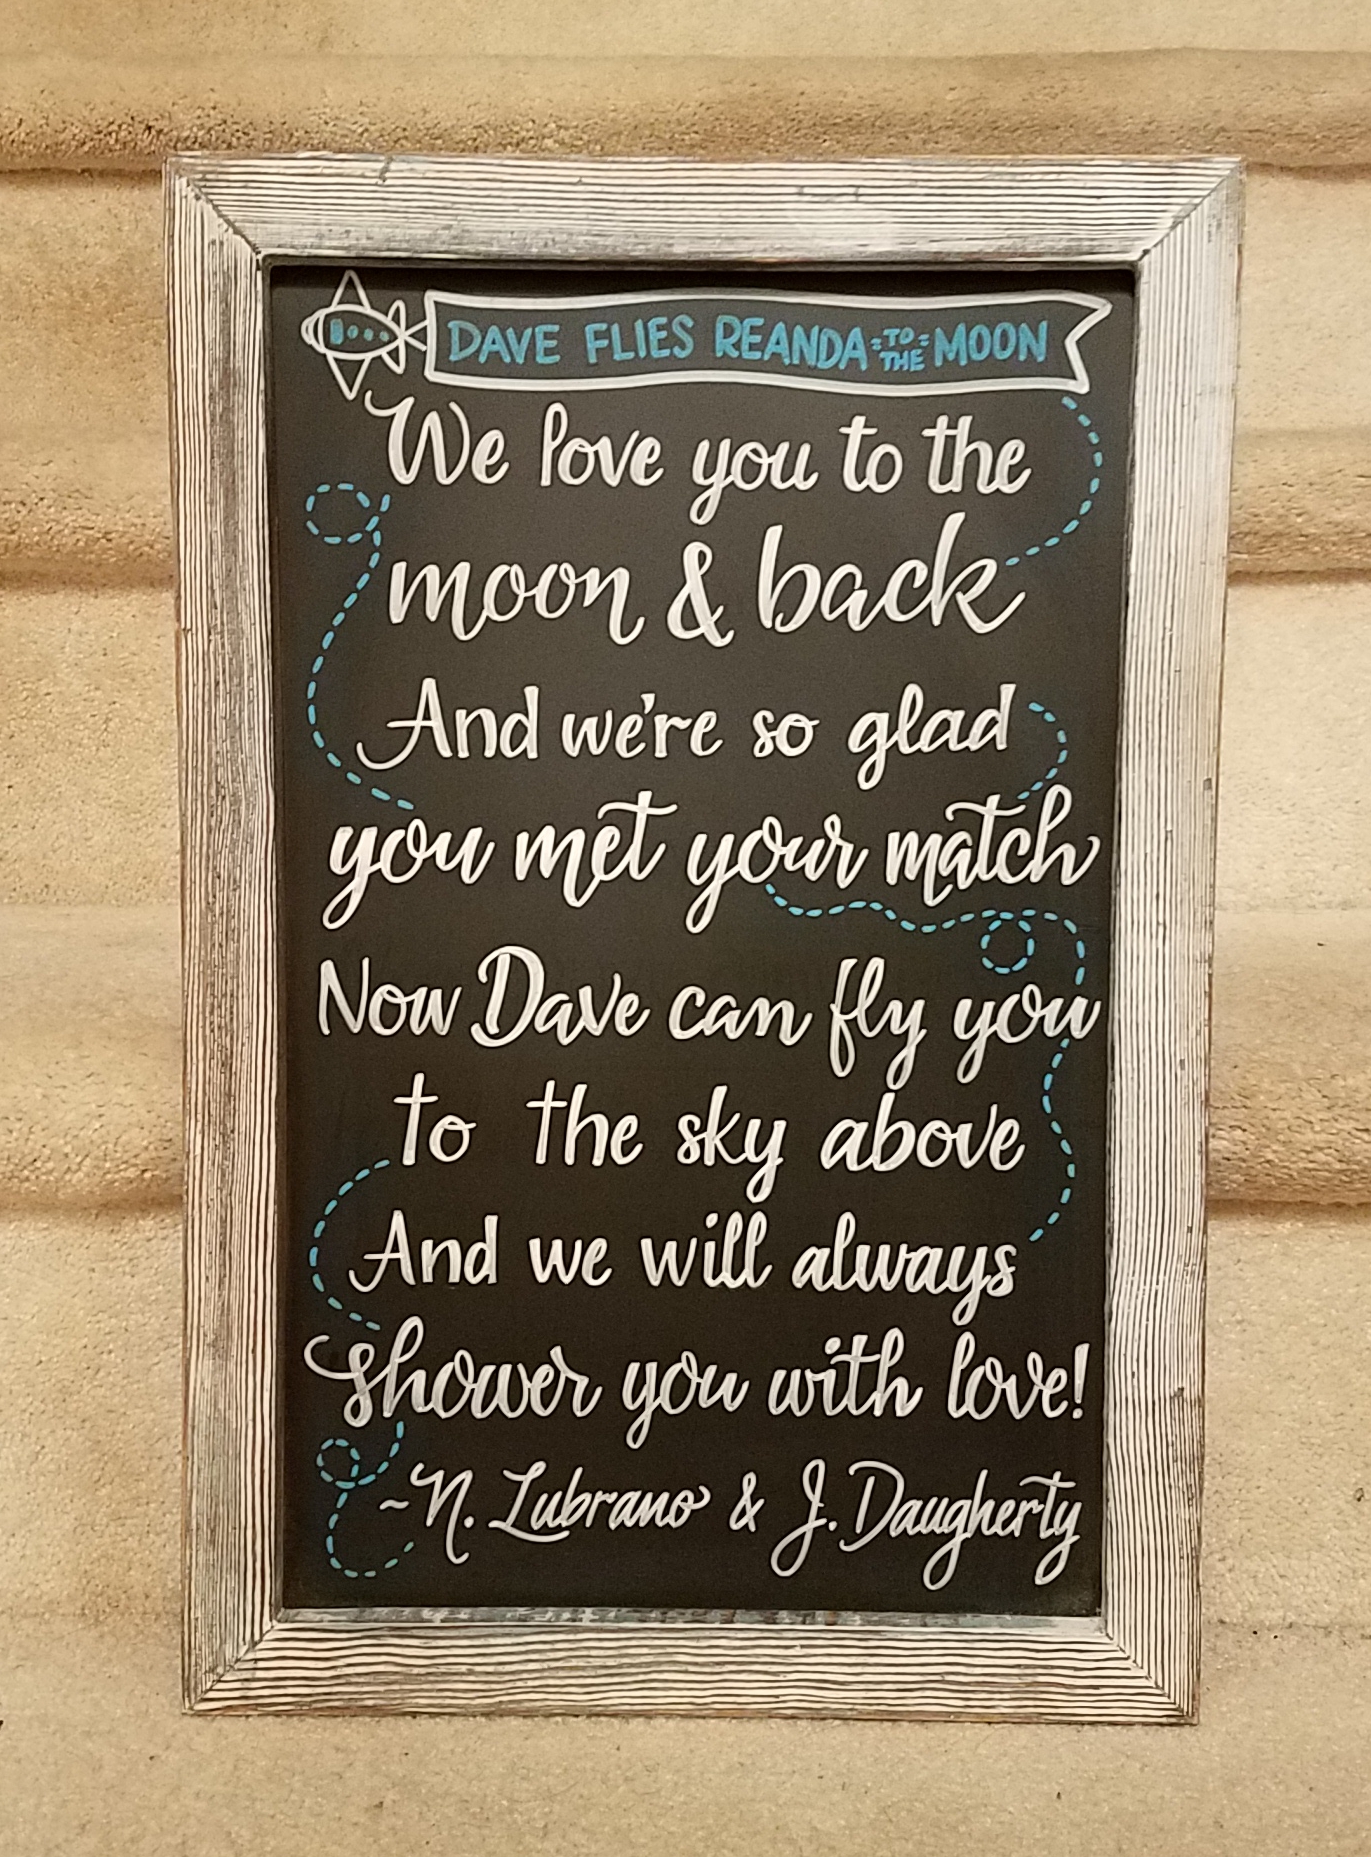 DAVE FLIES REANDA :TO THE: MOON
We love you to the
moon & back
And we're so glad
you met your match
Now Dave can fly you
to the sky above
And we will always
shower you with love!
~N. Lubrano & J. Daugherty